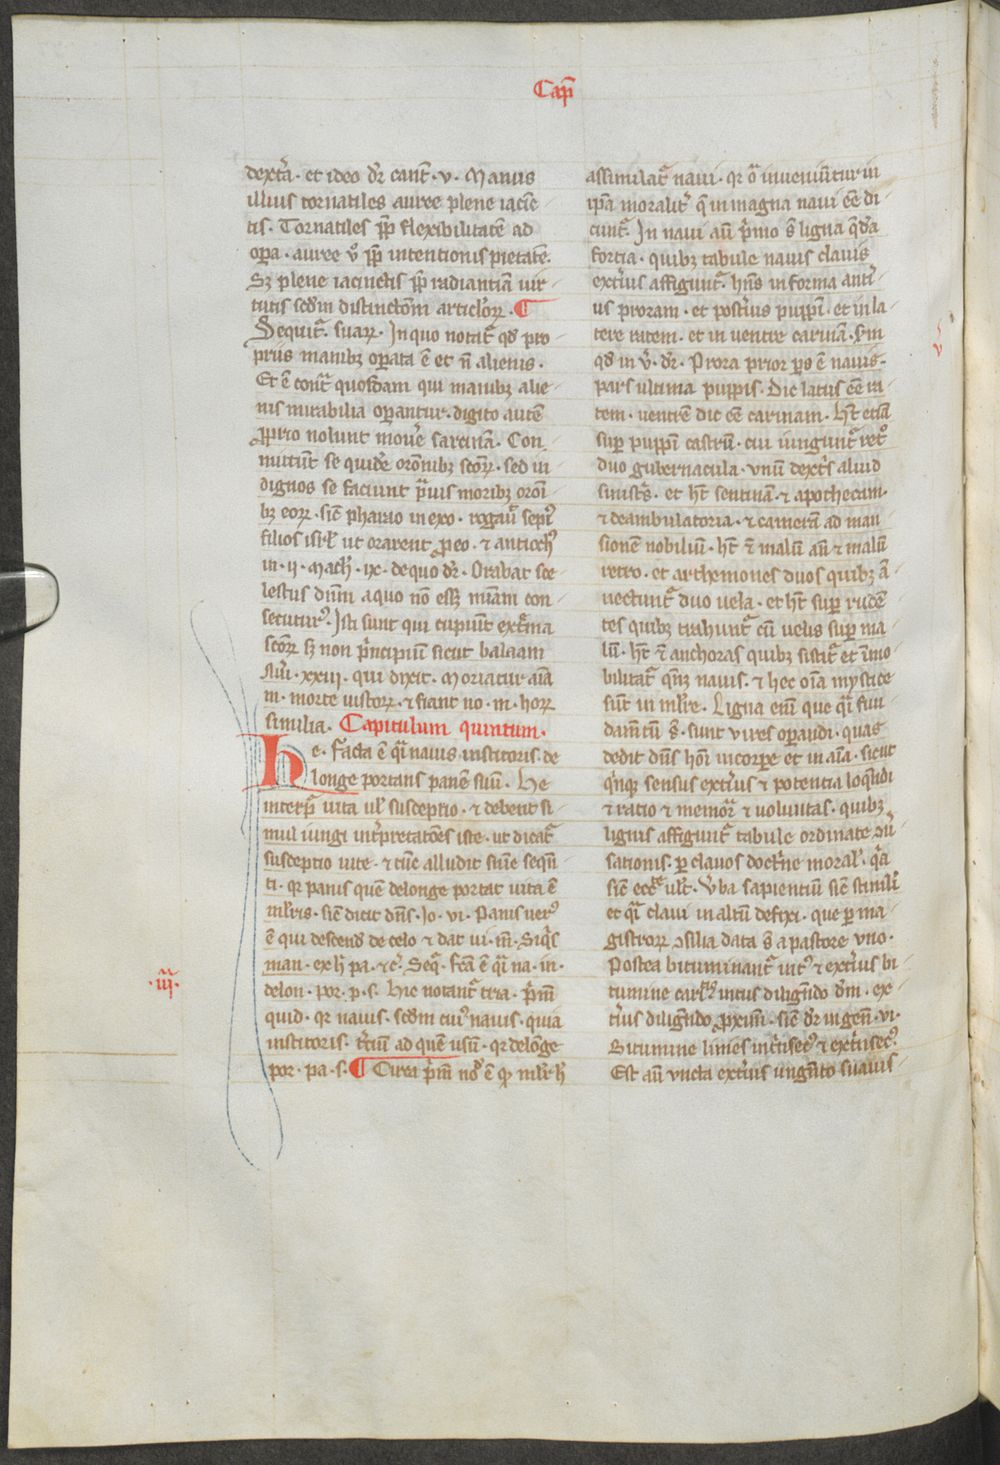 Cap̄
dext̄a · et ideo dr̄ cant̄ · v · Manus
illius tornatiles auree plene iacic̄
tis · Tornatiles ꝓp̄ flexibilitatē ad
oꝑa · auree v̊ ꝓp̄ intentionis pietatē ·
Sꝫ plene iacinctis ꝓp̄ radiantiā vir
tutis scd̄m distinctōm articl̓oꝝ · ¶
Sequit̄ · suaꝝ · In quo notat̄ qd̓ pro
prijs manibꝫ oꝑata ē et nō alienis ·
Et ē cont̄ quosdam qui manibꝫ alie
nis mirabilia oꝑantur · digito autē
ꝓprio nolunt mouē sarcinā · Con
mittūt se quidē orōnibꝫ sc̄oꝝ · sed in
dignos se faciunt p̄uis moribꝫ orōi
bꝫ eoꝝ · sic̄ pharao in exo · rogau̓ sepi̓
filios isrl̓ ut orarent ꝓ eo · ⁊ antioch̓
in · ij · Mach̓ · ix · de quo dr̄ · Orabat sce
lestus dn̄m a quo nō essꝫ miā̄m con
secutur̓ · Isti sunt qui cupiūt ext̄ma
sc̄oꝝ sꝫ non p̄ncipiū sicut balaam
nu̓ · xxiij · qui dixit · Moriatur aīa
m · morte iustoꝝ · ⁊ fiant no · m · hoꝝ
similia · Capitulum quintum ·
he · Facta ē q̄i nauis institoris · de
longe portans panē suū · He
interp̄ vita ul̓ susceptio · ⁊ debent si
mul iungi int̓pretatōes iste · ut dicat̄
susceptio uite · ⁊ tūc alludit sūe seqn̄
ti · qr panis quē de longe portat vita ē
ml̓ris · sic̄ dicit dn̄s · Jo · vi · Panis uer̓
ē qui descend̓ de celo ⁊ dat vi · m̄ · Siq̓s
man · ex h̓ pa · ⁊c̓ · Seq̄ · fc̄a ē q̄i na · in ·
delon · por · p · s · Hic notant̄ tria · p̄m̄
quid · qr nauis · scd̄m cui̓ nauis · quia
institoris · t̓ciū ad quē usū · qr delōge
por · pa · s · ¶ Circa p̄m̄ no̓ ē ꝙ ml̓r h̓
·iij·
assimilat̄ naui · qr oī̄a inueniūtur in
ip̄a moralit̓ q̄ in magna naui eē di
cunt̄ · In naui aū p̓mo s̄ ligna q̄dā
fortia · quibꝫ tabule nauis clauis
ext̓ius affigunt̄ · hn̄s in forma ant̓i
us proram · et post̓ius puppī · et in la
tere ratem · et in uentre carinā · Vn̄
qd̓ in v̓ · dr̄ · Prora prior ps̄ ē nauis ·
pars ultima puppis · Dic latus eē ra
tem · uentrē dic eē carinam · Hꝫ etiā
suꝑ puppī castrū · cui iungunt̄ ret̊
duo gubernacula · vnū dext̓s aliud
sinist̓s · et ht̄ sentinā · ⁊ apothecam ·
⁊ deambulatoria · ⁊ camerā ad man
sionē nobiliū · ht̄ ⁊ malū aū ⁊ malū
retro · et arthemones duos quibꝫ ā
nectunt̄ duo uela · et ht̄ suꝑ rudē
tes quibꝫ trahunt̄ cū uelis suꝑ ma
lū · ht̄ ⁊ anchoras quibꝫ sistit̄ et īmo
bilitat̄ qn̄qꝫ nauis · ⁊ hec oīa mystice
sūt in ml̓re · Ligna eni̅ que q̄i fun
damtū s̄ · sunt vires oꝑandi · quas
dedit dn̄s hoī̄ in corpe et in aīa · sicut
q̓nqꝫ sensus ext̓ius ⁊ potentia loq̄ndi
⁊ ratio ⁊ memor̄ ⁊ voluntas · quibꝫ
lignis affigunt̄ tabule ordinate ꝯu̓
sationis · ꝑ clauos doct̓ne moral̓ · q̓a
sic̄ eccᵉ ult̓ · v̓ba sapientiū sic̄ stimli̓
et q̄i claui in altū defixi · que ꝑ ma
gistroꝝ ꝯsilia data s̄ a pastore vno ·
Postea bituminant̄ int̓ ⁊ ext̓ius bi
tumine caritatis intus diligēdo dm̄ · ex
t̓ius diligēdo ꝓximū · sic̄ dr̄ in gen̄ · vi ·
Bitumine linies int̓nsec̓ ⁊ ext̓nsec̓ ·
Est aū vncta ext̓ius ungn̄to suauis
v